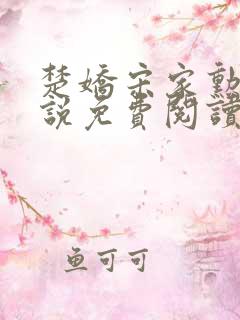 楚嬌宋家勳
說免費閱讀
魚可可